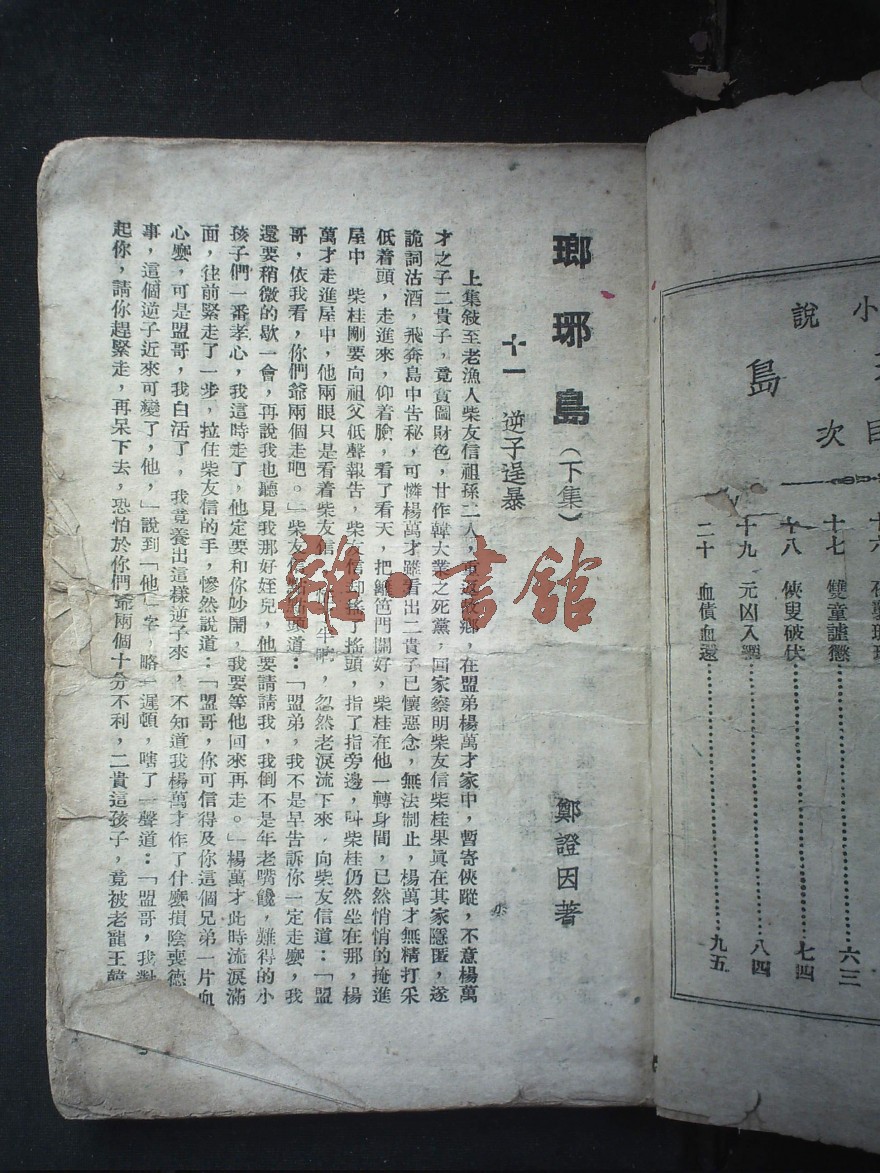 小
說
島
目
次
十七 雙童譴懲 六三
十八 俠叟破伏 七四
十九 元凶入網 八四
二十 血債血還 九五
瑯琊島（下集） 鄭證因著
十一 逆子逞暴
上集敍至老漁人柴友信祖孫二人，重返故鄉，在盟弟楊萬才家中，暫寄俠蹤，不意楊萬
才之子二貴子，竟貪圖財色，甘作韓大業之死黨，回家察明柴友信柴桂果眞在其家隱匿，遂
詭詞沽酒，飛奔島中告秘，可憐楊萬才雖看出二貴子已懷惡念，無法制止，楊萬才無精打采
低着頭，走進來，仰着臉，看了看天，把籬笆門關好，柴桂在他一轉身間，已然悄悄的掩進
屋中 柴桂剛要向祖父低聲報告，柴友信却搖了搖頭，指了指旁邊，叫柴桂仍然坐在那，楊
萬才走進屋中，他兩眼只是看着柴友信，半晌，忽然老淚流下來，向柴友信道：「盟
哥，依我看，你們爺兩個走吧。」柴友信點頭道：「盟弟，我不是早告訴你一定走麼，我
還要稍微的歇一會，再說我也聽見我那好姪兒，他要請請我，我倒不是年老嘴饞，難得的小
孩子們一番孝心，我這時走了，他定要和你吵鬧，我要等他回來再走。」楊萬才此時流淚滿
面，往前緊走了一步，拉住柴友信的手，慘然說道：「盟哥，你可信得及你這個兄弟一片血
心麼，可是盟哥，我白活了，我竟養出這樣逆子來，不知道我楊萬才作了什麼損陰喪德
事，這個逆子近來可變了，他，」說到「他」字，略一遲頓，嗐了一聲道：「盟哥，我對
起你，請你趕緊走，再呆下去，恐怕於你們爺兩個十分不利，二貴這孩子，竟被老龍王韓
雜·書館